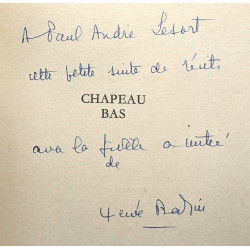 A Paul André Lesort
cette petite suite de récits
CHAPEAU
BAS
avec la fidèle amitié
de
Hervé Bazin